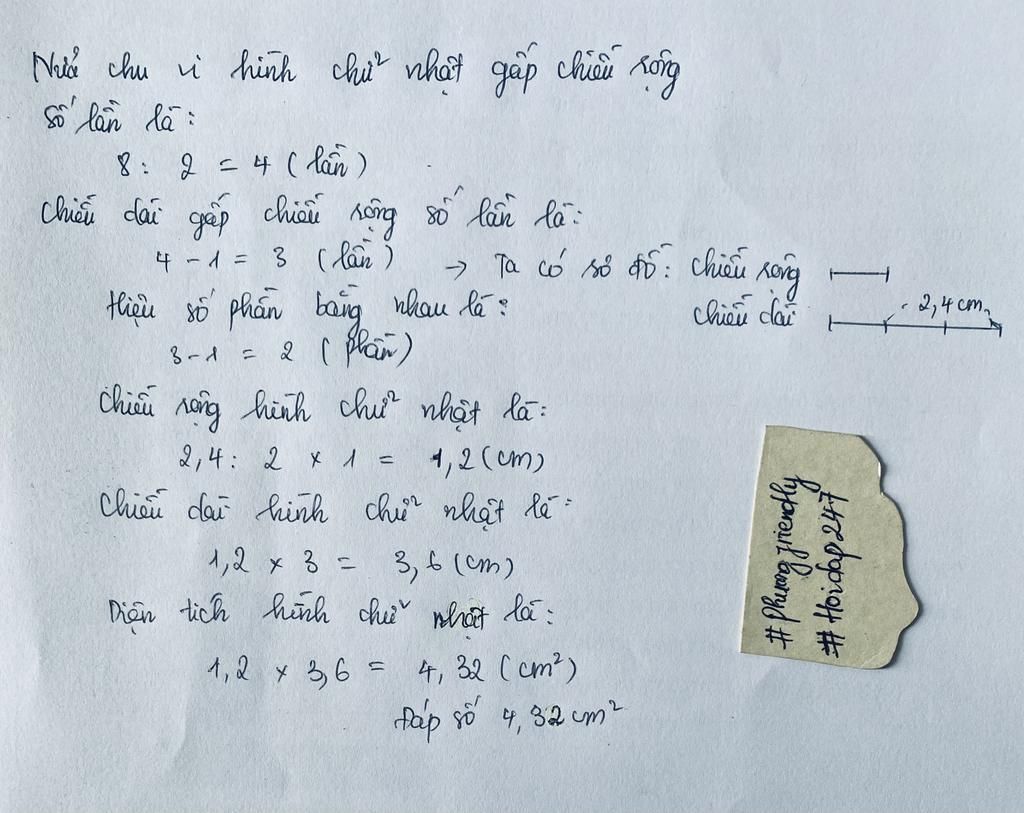 Nửa chu vi hình chữ nhật gấp chiều rộng
số lần là:
8 : 2 = 4 (lần)
Chiều dài gấp chiều rộng số lần là:
4 - 1 = 3 (lần) → Ta có sơ đồ: chiều rộng
Hiệu số phần bằng nhau là: chiều dài 2,4 cm
3 - 1 = 2 (phần)
Chiều rộng hình chữ nhật là:
2,4 : 2 × 1 = 1,2 (cm)
Chiều dài hình chữ nhật là:
1,2 × 3 = 3,6 (cm)
Diện tích hình chữ nhật là:
1,2 × 3,6 = 4,32 (cm²)
Đáp số 4,32 cm²
#Phuongfriendly
#Hoidap247